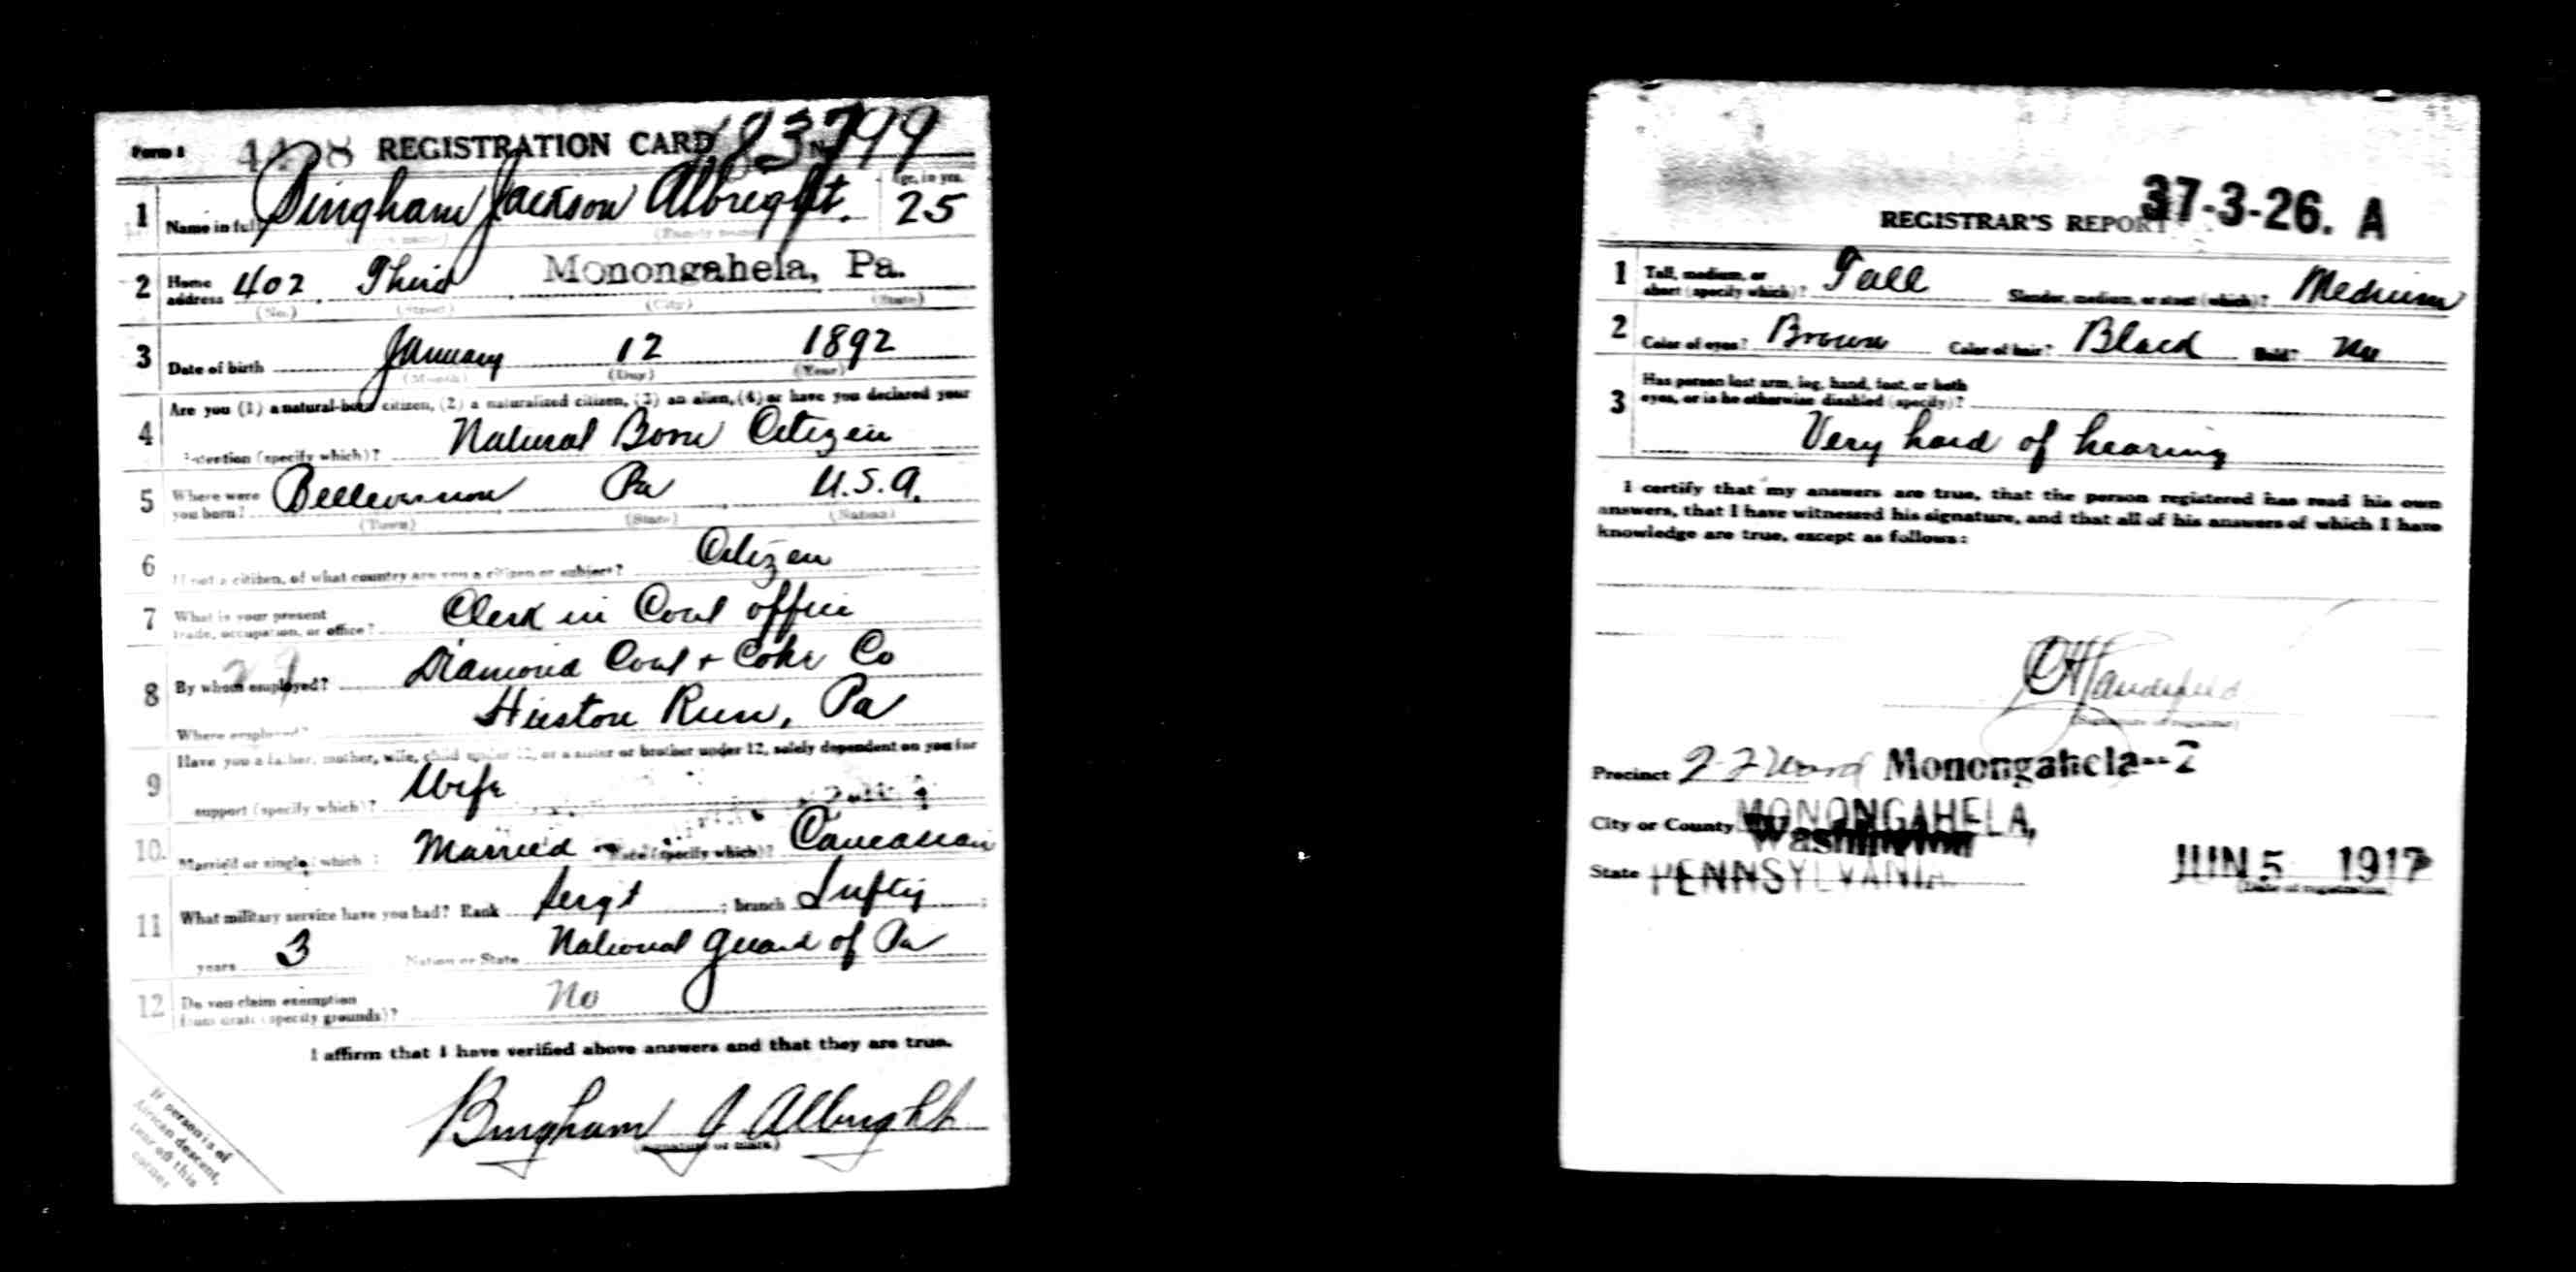 Form 1 REGISTRATION CARD No. 799
1 Name in full Bingham Jackson Albright. Age, in yrs. 25
(Family name)
2 Home address 402 Third Monongahela, Pa.
(No.) (Street) (City) (State)
3 Date of birth January 12 1892
(Month) (Day) (Year)
4 Are you (1) a natural-born citizen, (2) a naturalized citizen, (3) an alien, (4) or have you declared your
intention (specify which)? Natural Born Citizen
5 Where were you born? Bellevernon Pa U.S.A.
(Town) (State) (Nation)
6 If not a citizen, of what country are you a citizen or subject? Citizen
7 What is your present trade, occupation, or office? Clerk in Coal office
8 By whom employed? Diamond Coal + Coke Co
Where employed? Run, Pa
9 Have you a father, mother, wife, child under 12, or a sister or brother under 12, solely dependent on you for
support (specify which)? Wife
10 Married or single (which)? Married Race (specify which)? Caucasian
11 What military service have you had? Rank Sergt ; branch Inftry ;
years 3 Nation or State National Guard of Pa
12 Do you claim exemption from draft (specify grounds)? No
I affirm that I have verified above answers and that they are true.
Bingham J Albright
(Signature or mark)
If person is of
African descent,
tear off this
corner
37-3-26. A
REGISTRAR'S REPORT
1 Tall, medium, or short (specify which)? Tall Slender, medium, or stout (which)? Medium
2 Color of eyes? Brown Color of hair? Black Bald? No
3 Has person lost arm, leg, hand, foot, or both
eyes, or is he otherwise disabled (specify)?
Very hard of hearing
I certify that my answers are true, that the person registered has read his own
answers, that I have witnessed his signature, and that all of his answers of which I have
knowledge are true, except as follows:
(Signature of registrar)
Precinct 2 Ward Monongahela--2
City or County MONONGAHELA,
Washington
State PENNSYLVANIA
JUN 5 1917
(Date of registration)